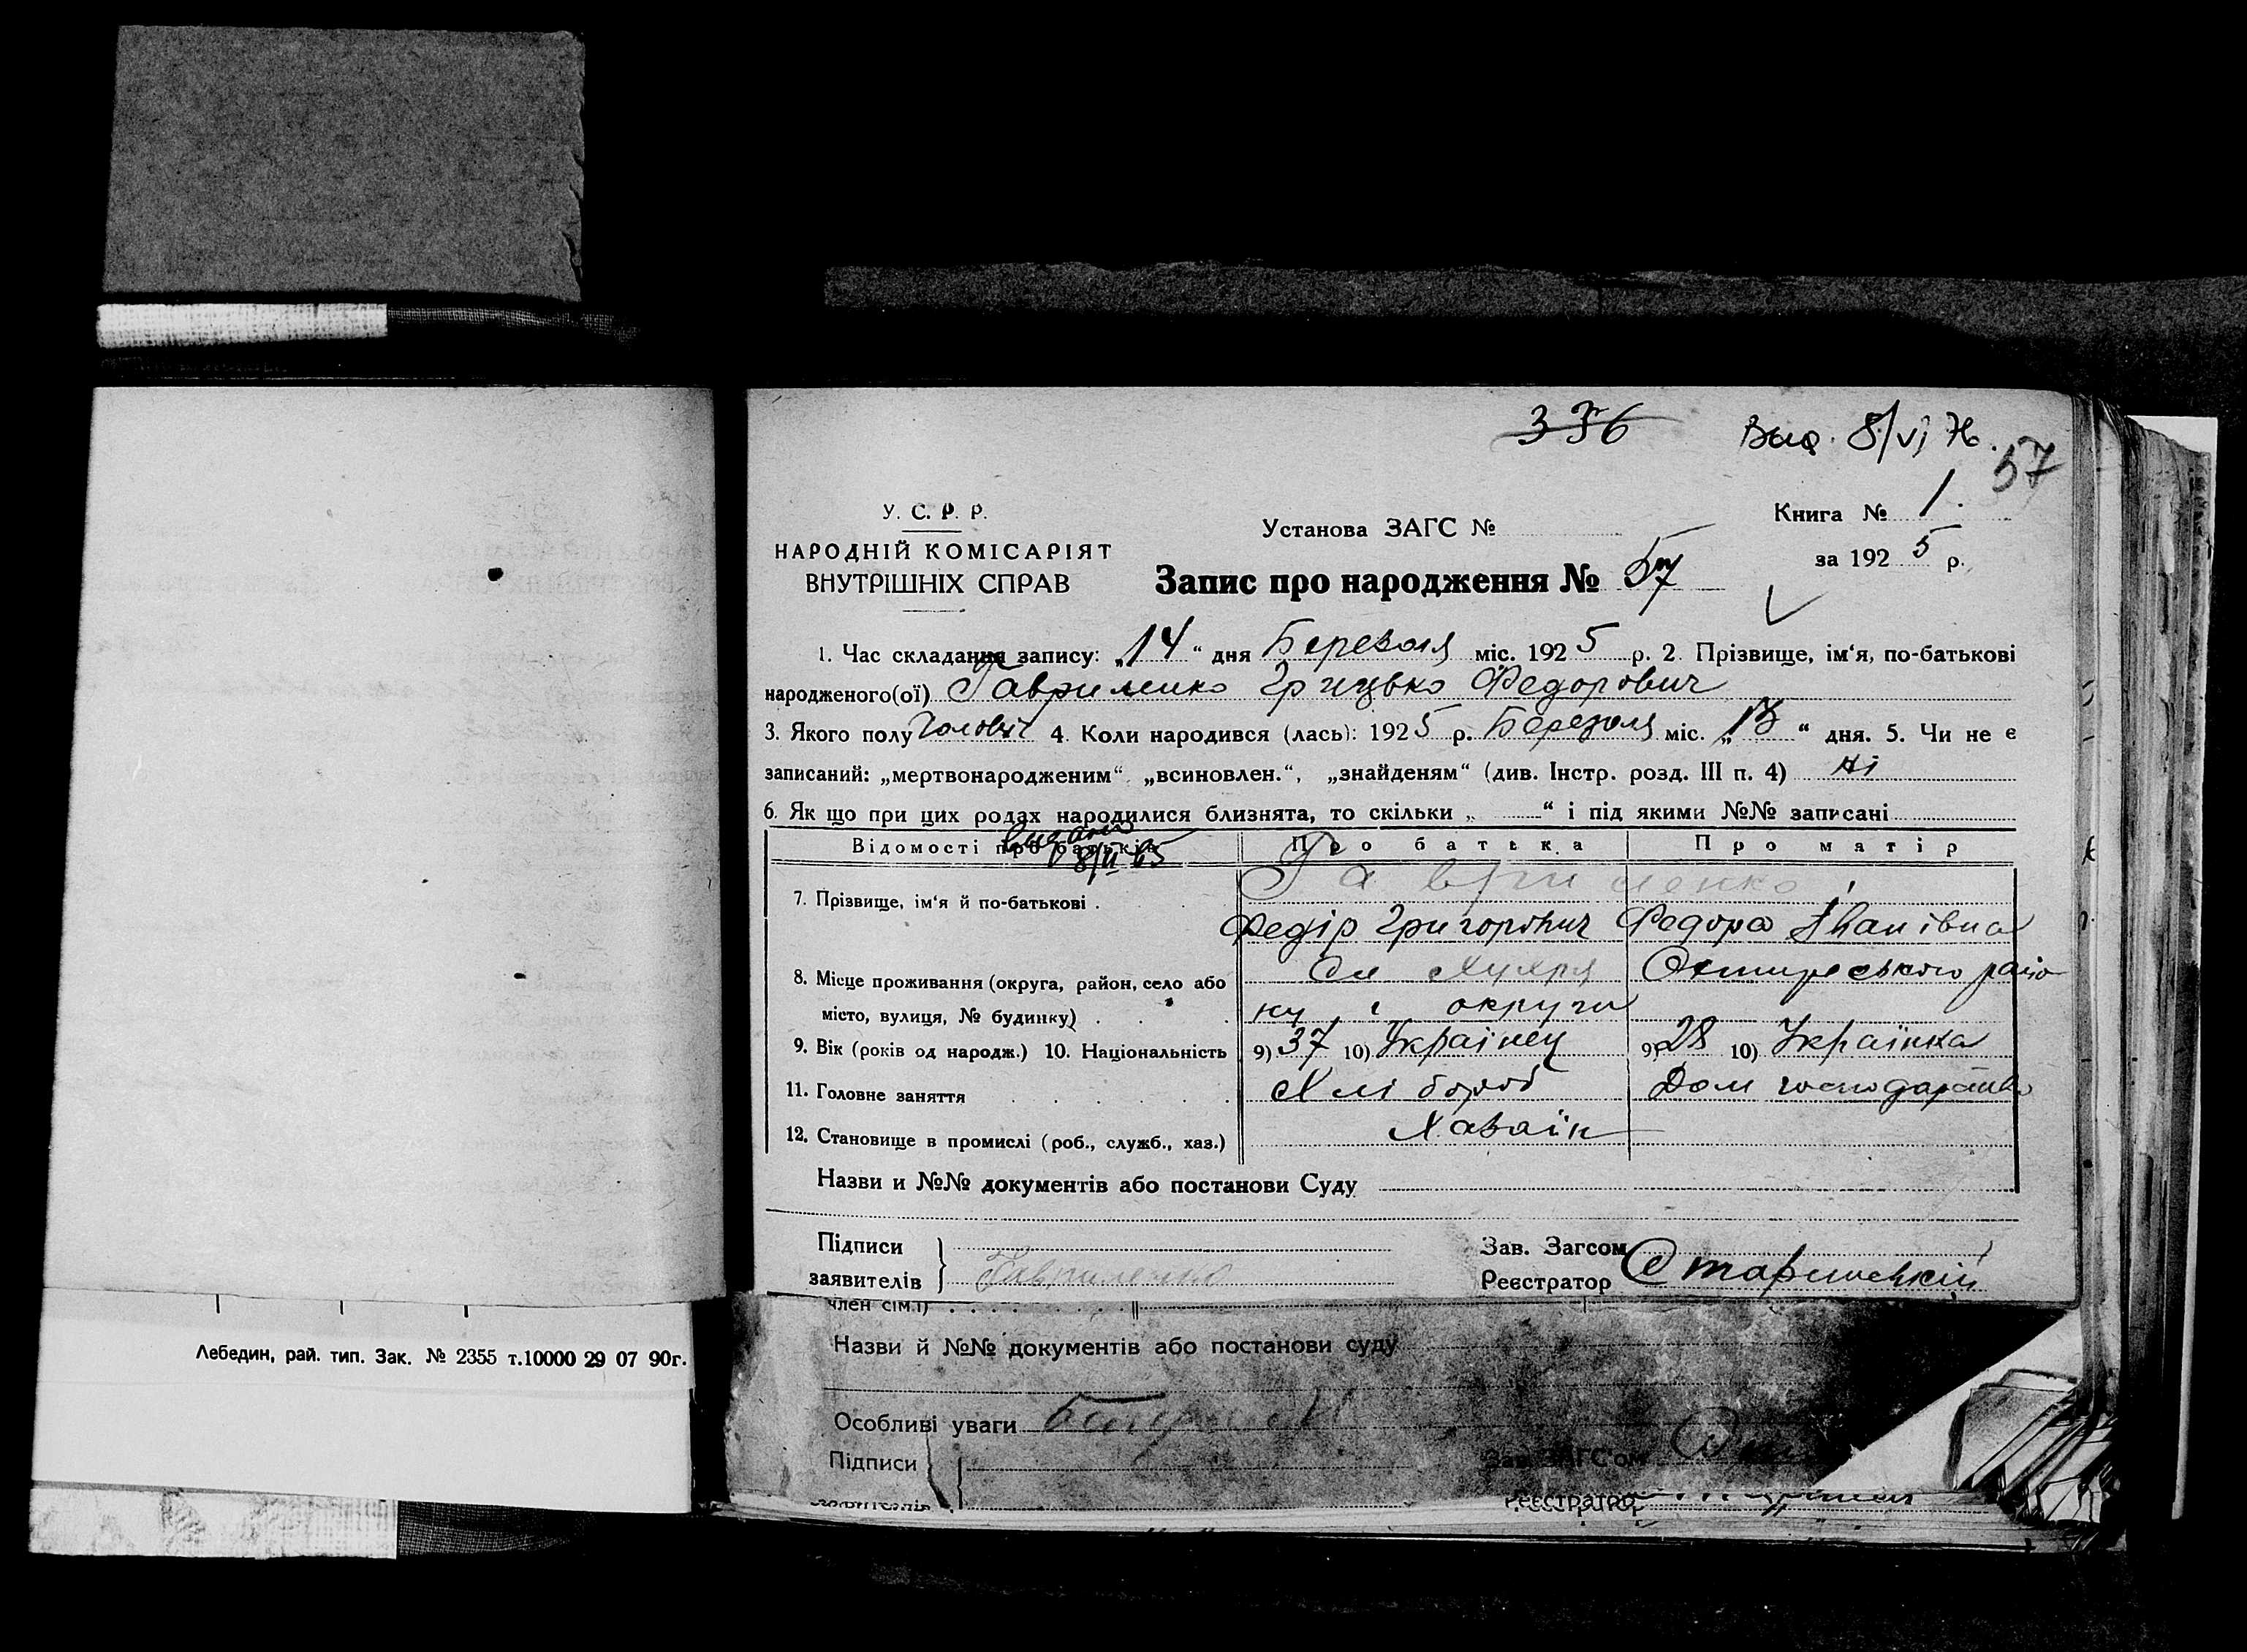 336
Выд. 8/VI 76.
57
У. С. Р. Р.
НАРОДНІЙ КОМІСАРІЯТ
ВНУТРІШНІХ СПРАВ
Установа ЗАГС №
Книга № 1.
за 1925 р.
Запис про народження № 57
1. Час складання запису: „14“ дня Березоля міс. 1925 р. 2. Прізвище, ім‘я, по-батькові
народженого(ої) Гавриленко Грицько Федорович
3. Якого полу Чоловіч 4. Коли народився (лась): 1925 р. Березоля міс. „13“ дня. 5. Чи не є
записаний: „мертвонародженим“ „всиновлен.“, „знайденям“ (див. Інстр. розд. III п. 4) Ні
6. Як що при цих родах народилися близнята, то скільки „ “ і під якими №№ записані
Відомості про батьків
Про батька
Про матір
7. Прізвище, ім‘я й по-батькові .
Гавриленко
Федір Григорович
Федора Іванівна
8. Місце проживання (округа, район, село або
місто, вулиця, № будинку)
Сл Хухря Охтирського райо
ну і округи
9. Вік (років од народж.) 10. Національність
9) 37 10) Українец
9) 28 10) Українка
11. Головне заняття
Хлібороб
Дом господарство
12. Становище в промислі (роб., служб., хаз.)
Хазаїн
Назви и №№ документів або постанови Суду
Підписи
заявителів
Гавриленко
Зав. Загсом
Реєстратор
член сім.ї)
Назви й №№ документів або постанови суду
Лебедин, рай. тип. Зак. № 2355 т.10000 29 07 90г.
Особливі уваги
Підписи
Зав. ЗАГС'ом
Реєстратор